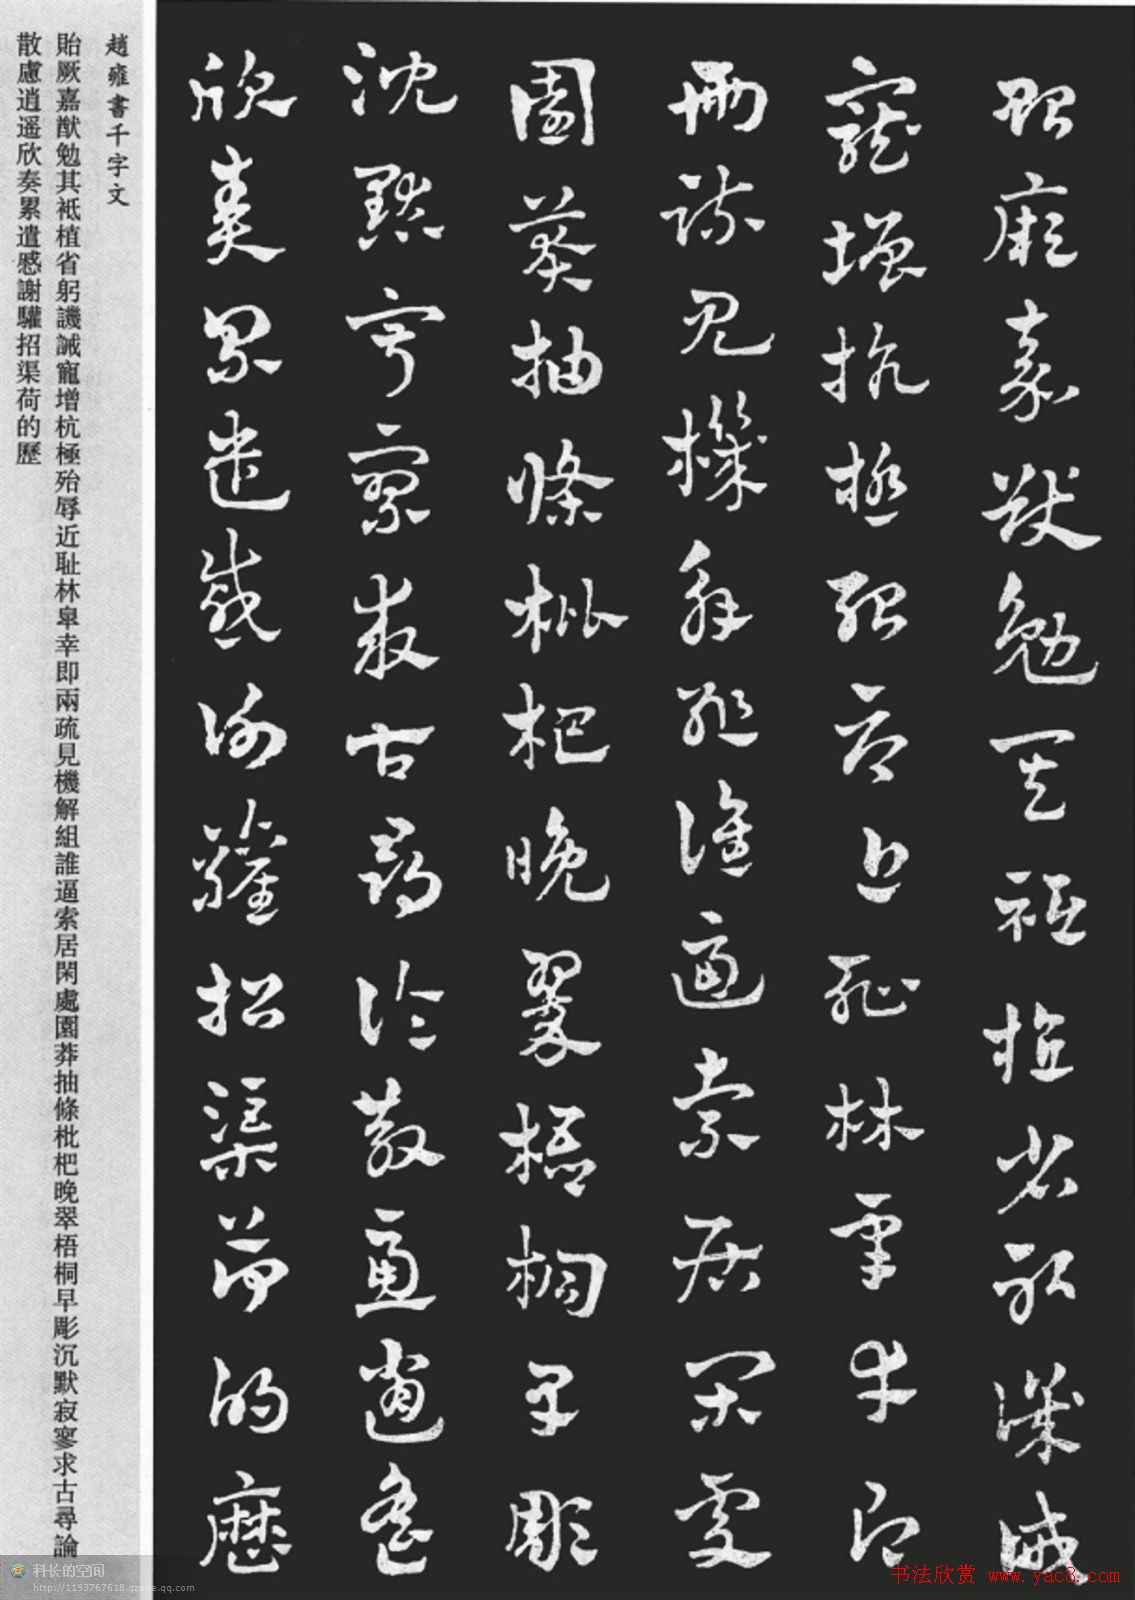 貽厥嘉猷勉其祗植省躬譏誡
寵增抗極殆辱近耻林皐幸即
兩疏見機解組誰逼索居閑處
園莽抽條枇杷晚翠梧桐早彫
沈默寂寥求古尋論散慮逍遥
欣奏累遣慼謝驩招渠荷的歷
趙雍書千字文
貽厥嘉猷勉其祗植省躬譏誡寵增杭極殆辱近耻林皐幸即兩疏見機解組誰逼索居閑處園莽抽條枇杷晚翠梧桐早彫沉默寂寥求古尋論
散慮逍遥欣奏累遣慼謝驩招渠荷的歷
科长的空间
http://1193767618.qzone.qq.com
书法欣赏 www.yac8.com